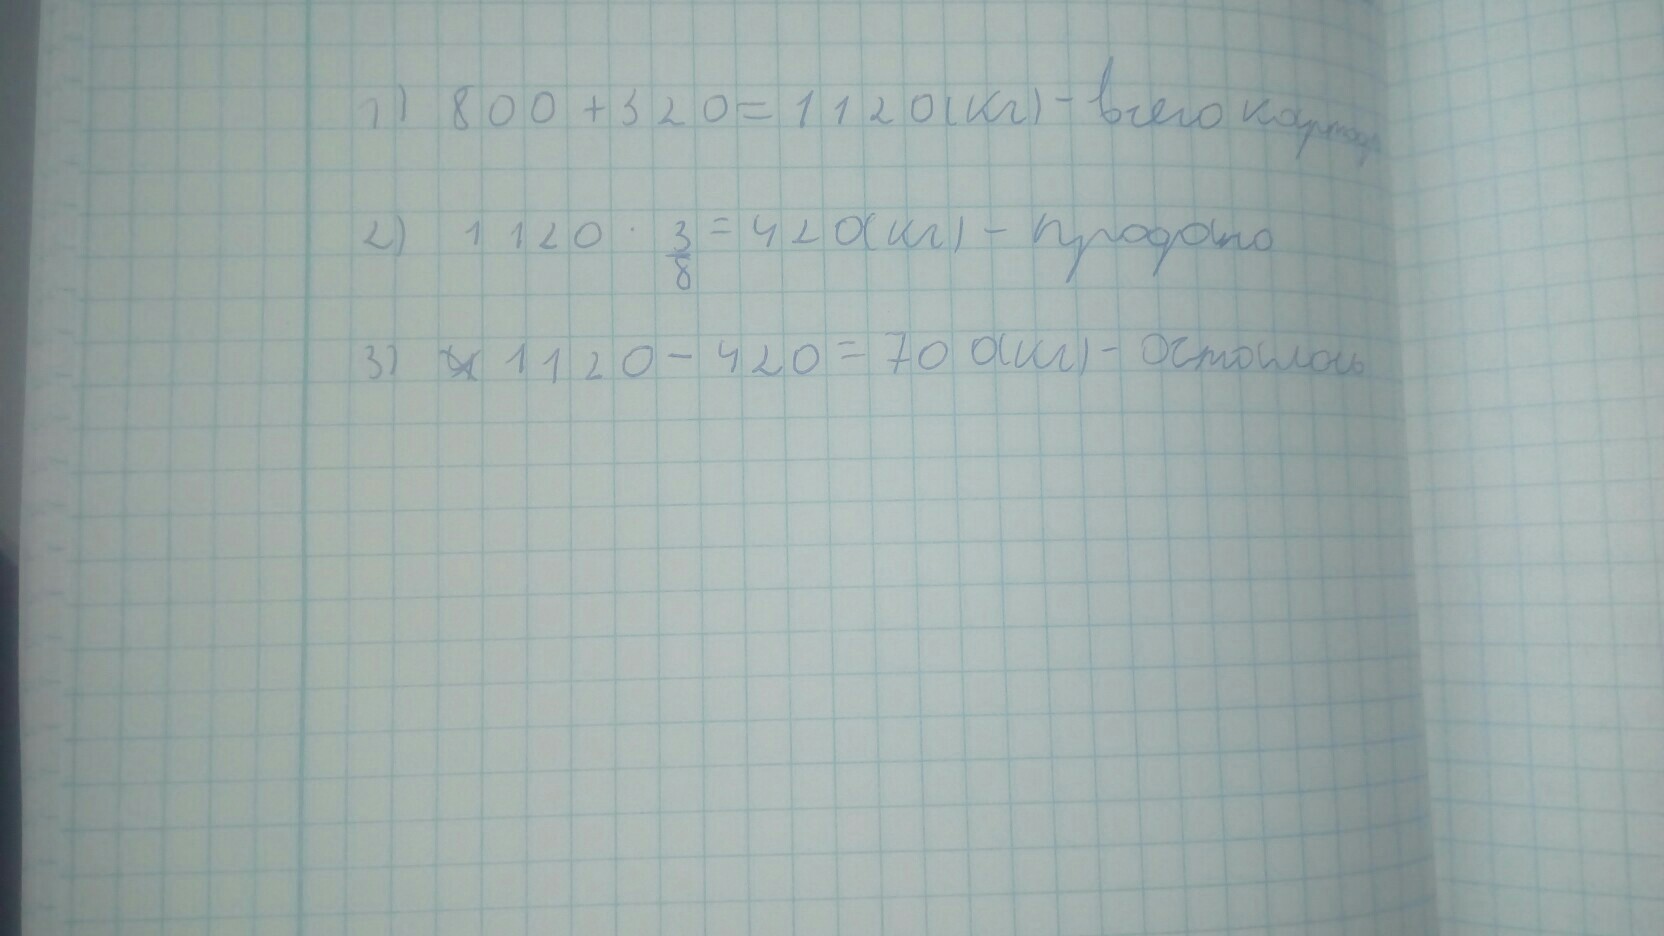 1) 800 + 320 = 1120(кг) - всего картоф
2) 1120 · 3/8 = 420(кг) - продано
3) 1120 - 420 = 700(кг) - осталось